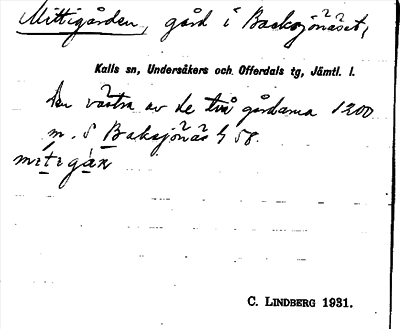 Mittigården, gård i Backsjönäset,
Kalls sn, Undersåkers och Offerdals tg, Jämtl. l.
Den västra av de två gårdarna 1200
m. S Baksjönäs
mıtıgàṉ
C. LINDBERG 1931.